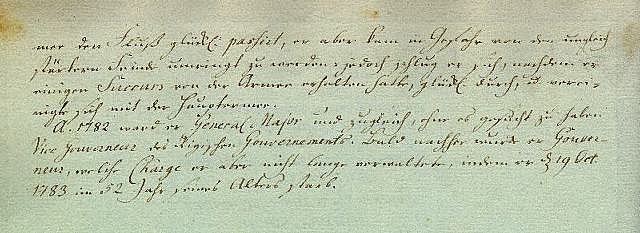 mee den Fluß glückl. passirt, er aber kam in Gefahr von den ungleich
stärkern Feinde umringt zu werden: jedoch schlug er sich, nachdem er
einigen Succurs von der Armee erhalten hatte, glückl. durch, u. verei-
nigte sich mit der Hauptarmee.
A. 1782 ward er General-Major und zugleich, ohne es gesucht zu haben
Vice Gouverneur des Rigischen Gouvernements. Bald nachher wurde er Gouver-
neur, welche Charge er aber nicht lange verwaltete, indem er d 19 Oct.
1783 im 52 Jahr seines Alters starb.